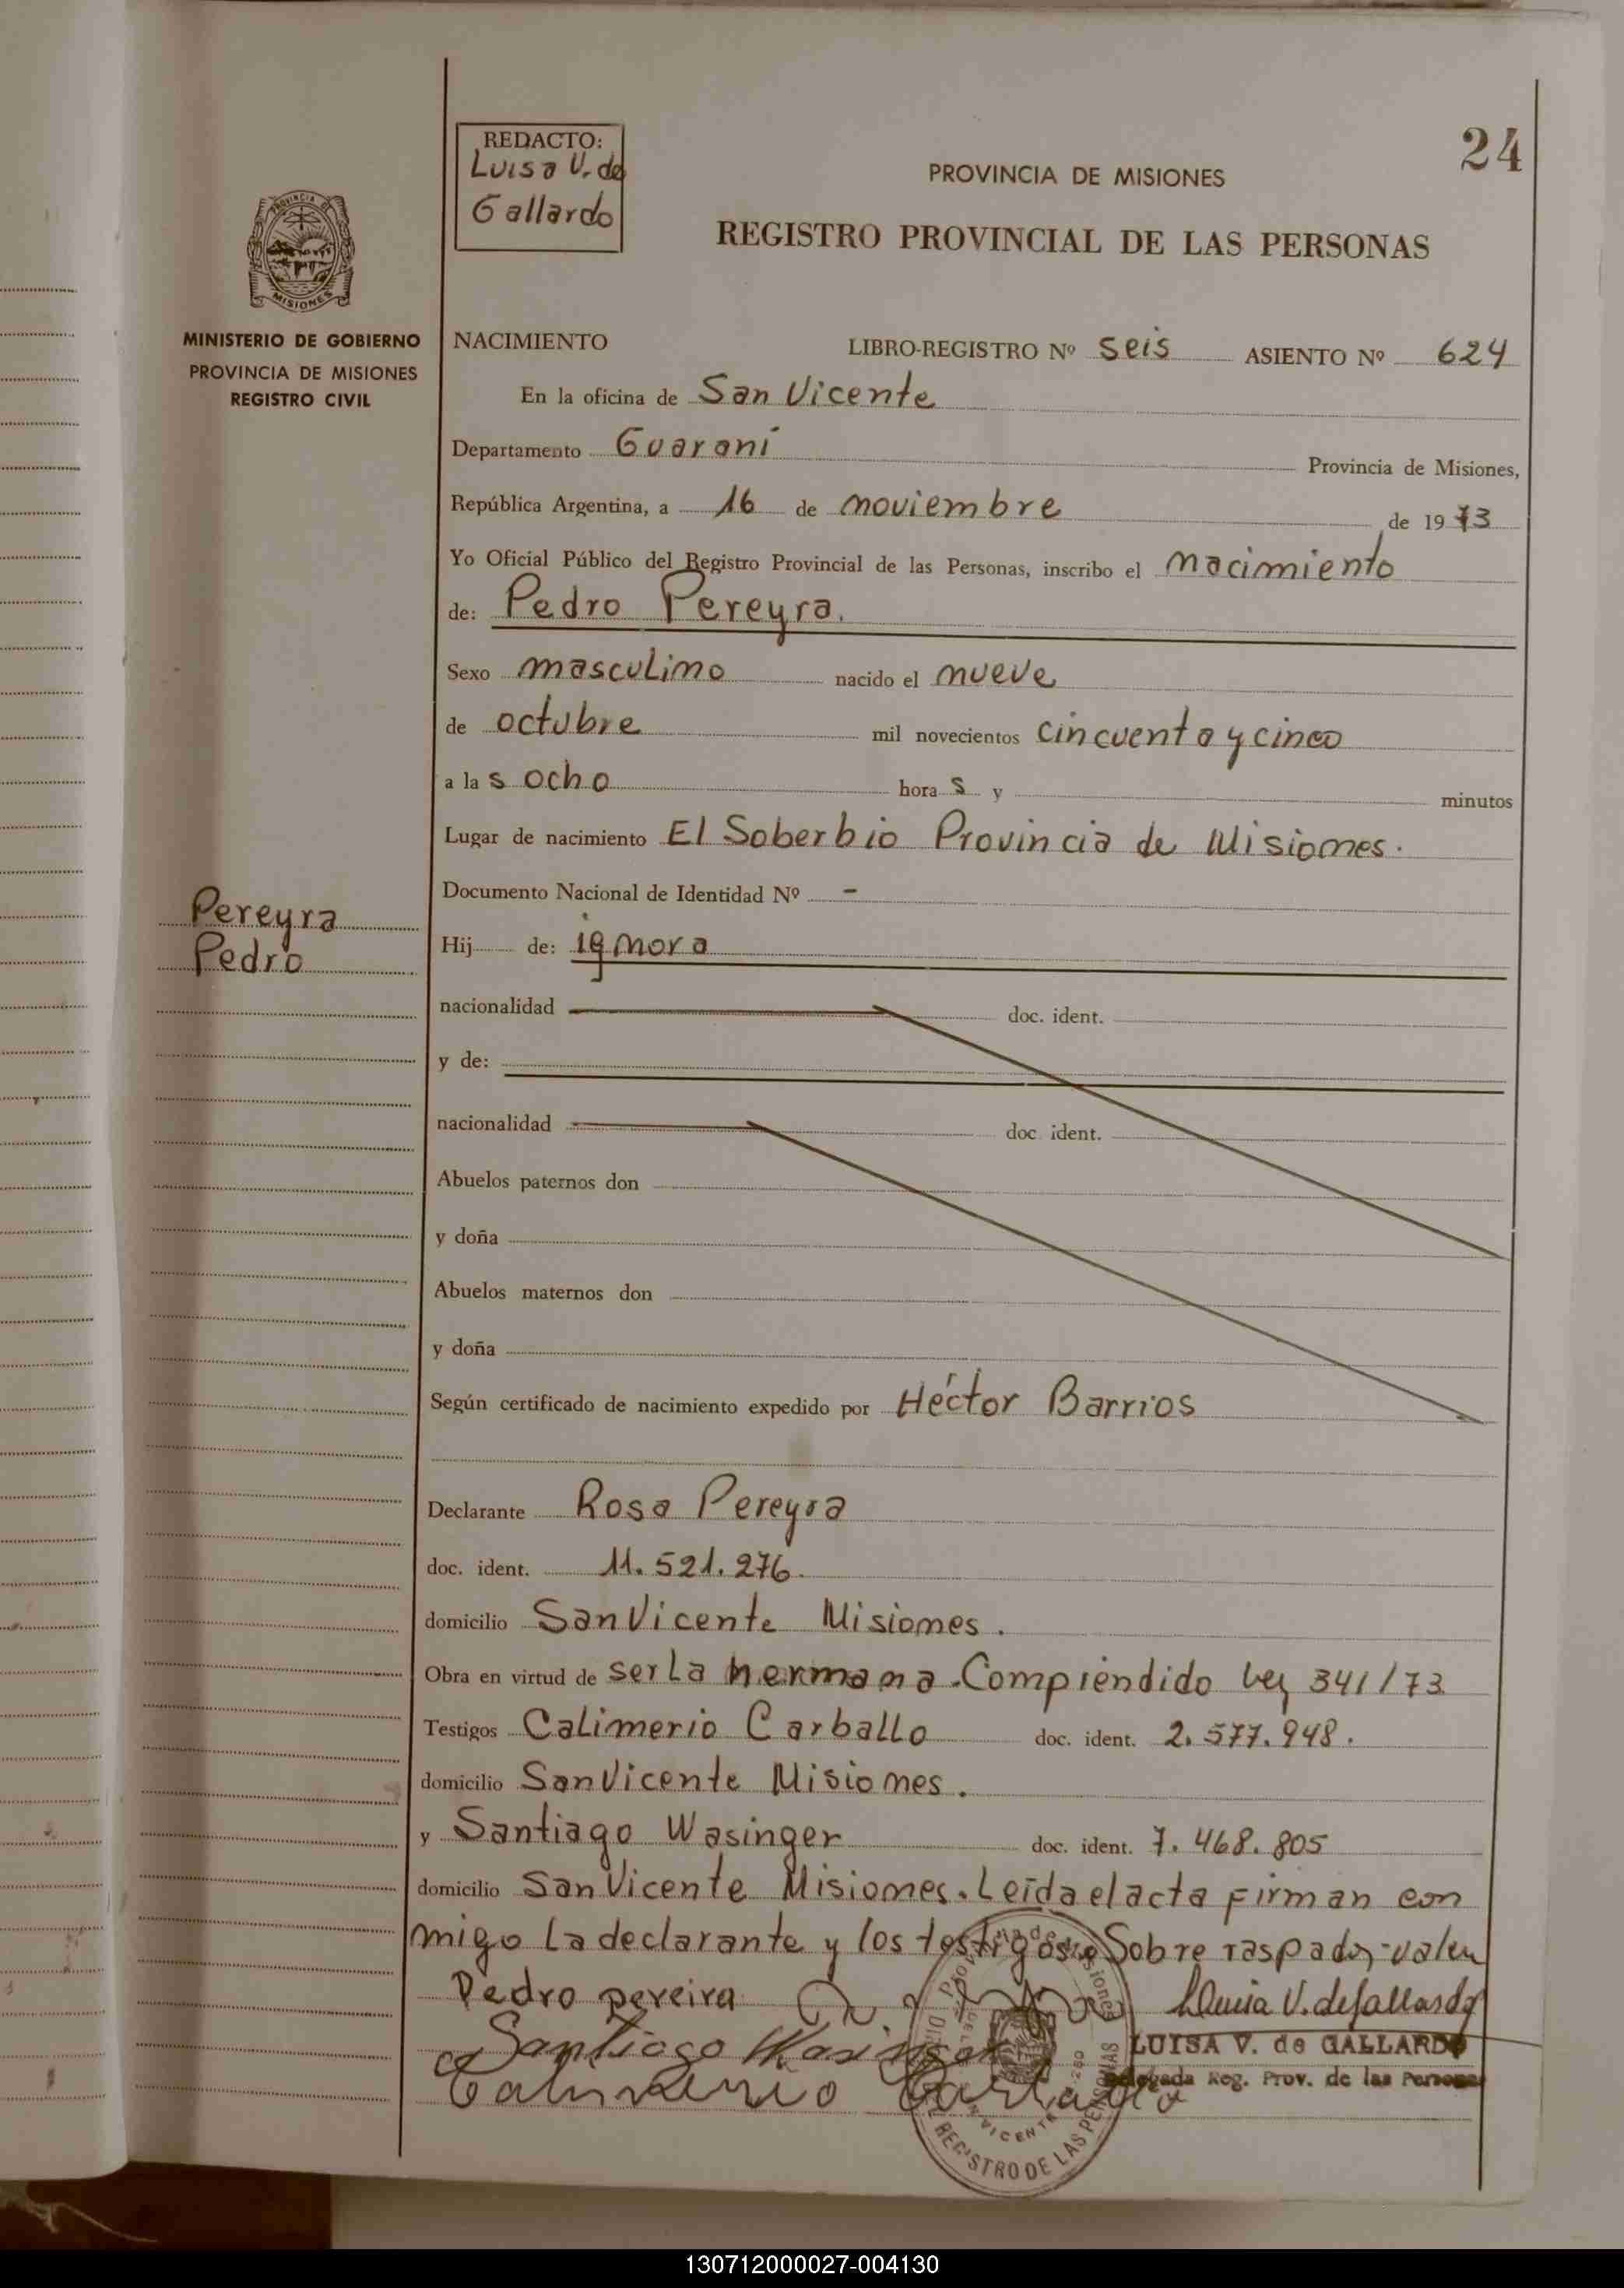 24
REDACTO:
Luisa V. de
Gallardo
PROVINCIA DE MISIONES
REGISTRO PROVINCIAL DE LAS PERSONAS
PROVINCIA DE
MISIONES
MINISTERIO DE GOBIERNO
PROVINCIA DE MISIONES
REGISTRO CIVIL
NACIMIENTO LIBRO-REGISTRO Nº seis ASIENTO Nº 624
En la oficina de San Vicente
Departamento Guaraní Provincia de Misiones,
República Argentina, a 16 de noviembre de 1973
Yo Oficial Público del Registro Provincial de las Personas, inscribo el nacimiento
de: Pedro Pereyra.
Sexo masculino nacido el nueve
de octubre mil novecientos cincuenta y cinco
a las ocho horas y minutos
Lugar de nacimiento El Soberbio Provincia de Misiones.
Documento Nacional de Identidad Nº -
Pereyra
Pedro
Hij de: ignora
nacionalidad doc. ident.
y de:
nacionalidad doc. ident.
Abuelos paternos don
y doña
Abuelos maternos don
y doña
Según certificado de nacimiento expedido por Héctor Barrios
Declarante Rosa Pereyra
doc. ident. 11.521.276.
domicilio San Vicente Misiones.
Obra en virtud de ser la hermana. Comprendido Ley 341/73
Testigos Calimerio Carballo doc. ident. 2.577.948.
domicilio San Vicente Misiones.
y Santiago Wasinger doc. ident. 7.468.805
domicilio San Vicente Misiones. Leída el acta firman con
migo la declarante y los testigos Sobre raspado, valen
Pedro pereira Luisa V. de Gallardo
Santiago Wasinger
LUISA V. de GALLARDO
Delegada Reg. Prov. de las Personas
Calimerio Carballo
REGISTRO DE LAS PERSONAS
130712000027-004130